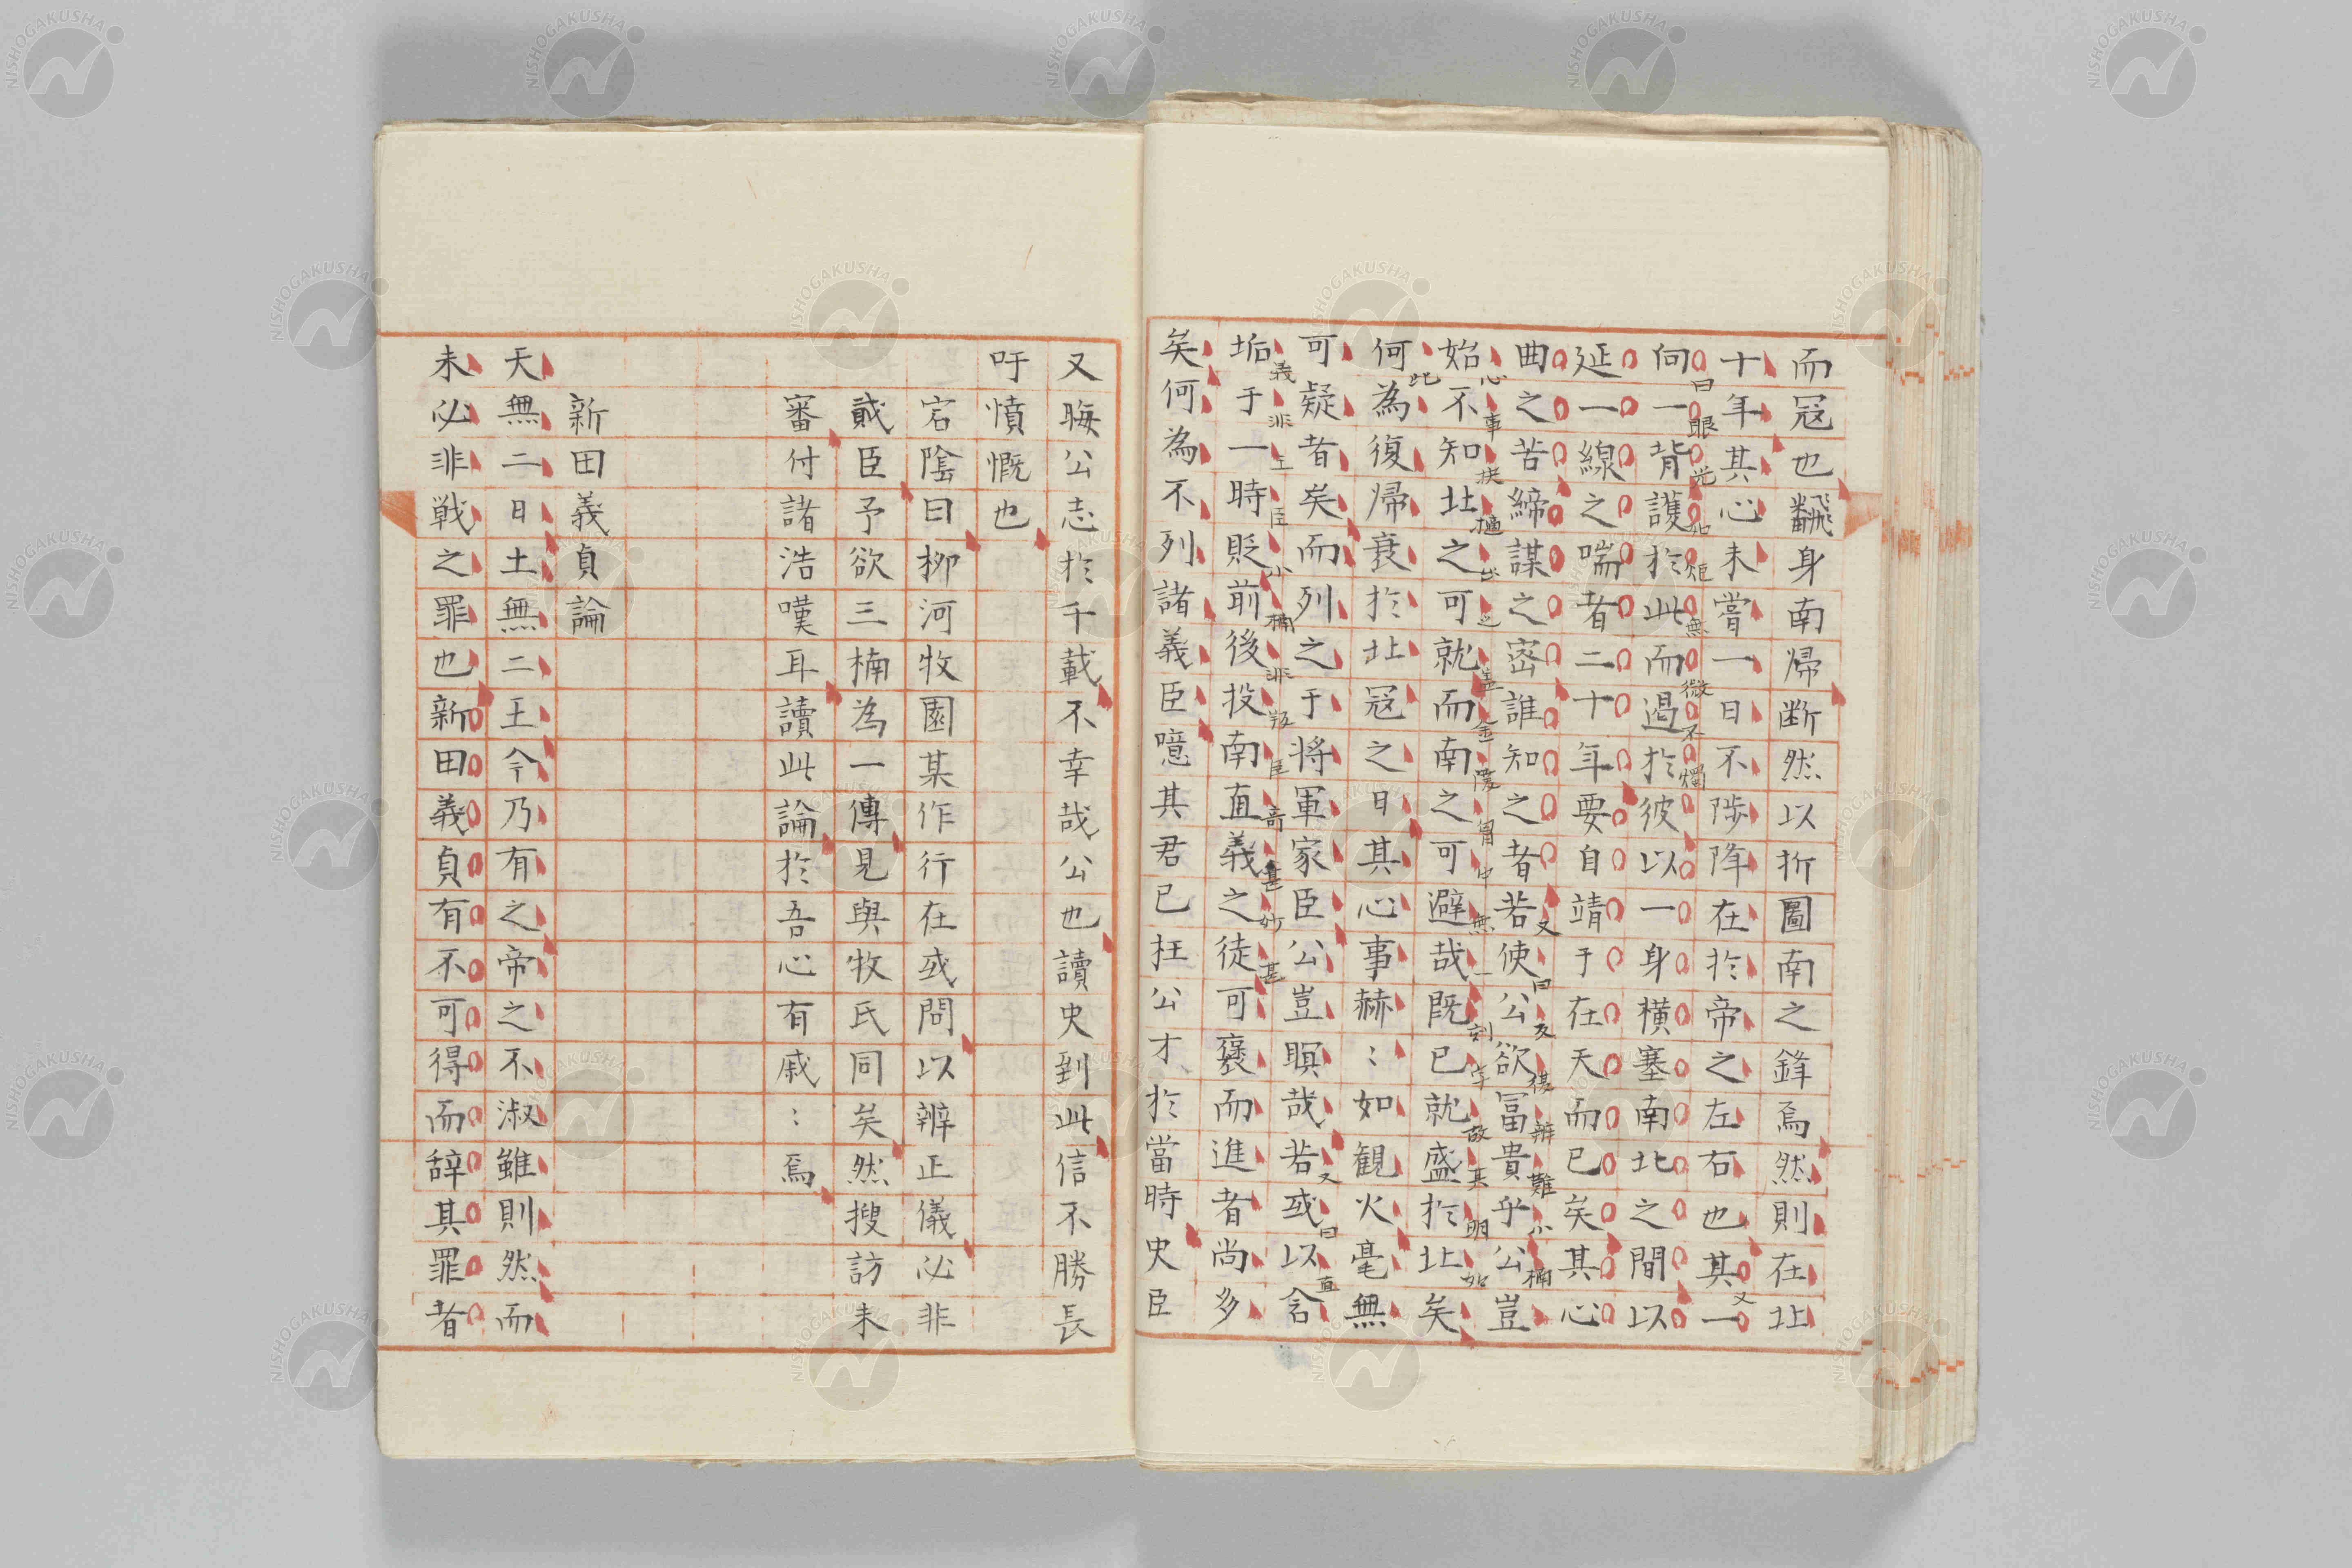 而冦也飜身南帰断然以折圖南之鋒焉然則在北
十年其心未嘗一日不陟降在於帝之左右也其一
向一背護於此而遏於彼以一身横塞南北之間以
又曰眼光如炬無微不燭
延一線之喘者二十年要自靖于在天而已矣其心
曲之苦締謀之密誰知之者若使公欲冨貴乎公豈
又曰及復辨難小楠
始不知北之可就而南之可避哉既已就盛於北矣
心事扶樋出之盖金陵胷中無一刻字故其明如
何為復帰衰於北冦之日其心事赫〻如観火毫無
此
可疑者矣而列之于将軍家臣公豈瞑哉若或以含
垢于一時貶前後投南直義之徒可褒而進者尚多
又曰直義非王臣小楠非叛臣奇甚妙甚
矣何為不列諸義臣噫其君已抂公才於當時史臣
又晦公志於千載不幸哉公也讀史到此信不勝長
吁憤慨也
宕陰曰柳河牧園某作行在或問以辨正儀必非
貮臣予欲三楠為一傳見與牧氏同矣然搜訪未
審付諸浩嘆耳讀此論於吾心有戚〻焉
新田義貞論
天無二日土無二王今乃有之帝之不淑雖則然而
未必非戦之罪也新田義貞有不可得而辞其罪者
NISHOGAKUSHA